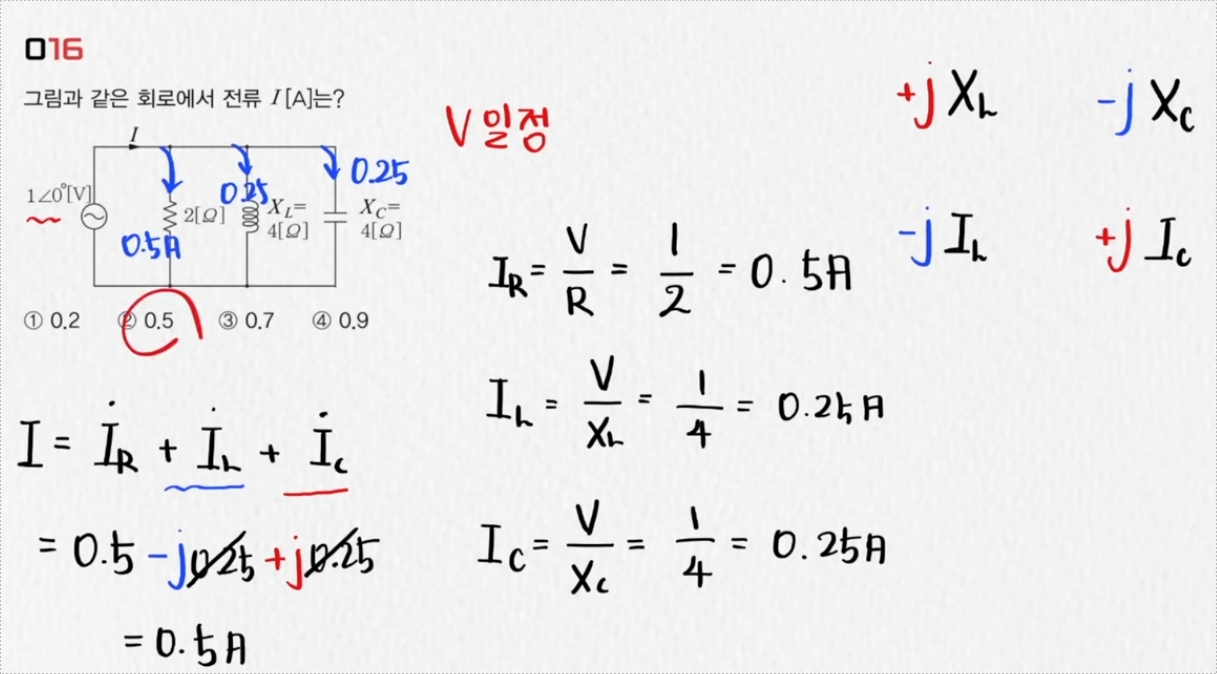 016
그림과 같은 회로에서 전류 I [A]는?
I
1∠0°[V]
2[Ω]
X_L=
4[Ω]
X_C=
4[Ω]
0.5A
0.25
0.25
① 0.2 ② 0.5 ③ 0.7 ④ 0.9
I = İ_R + İ_L + İ_C
= 0.5 -j0.25 +j0.25
= 0.5A
V 일정
I_R = V/R = 1/2 = 0.5A
I_L = V/X_L = 1/4 = 0.25A
I_C = V/X_C = 1/4 = 0.25A
+j X_L -j X_C
-j I_L +j I_C